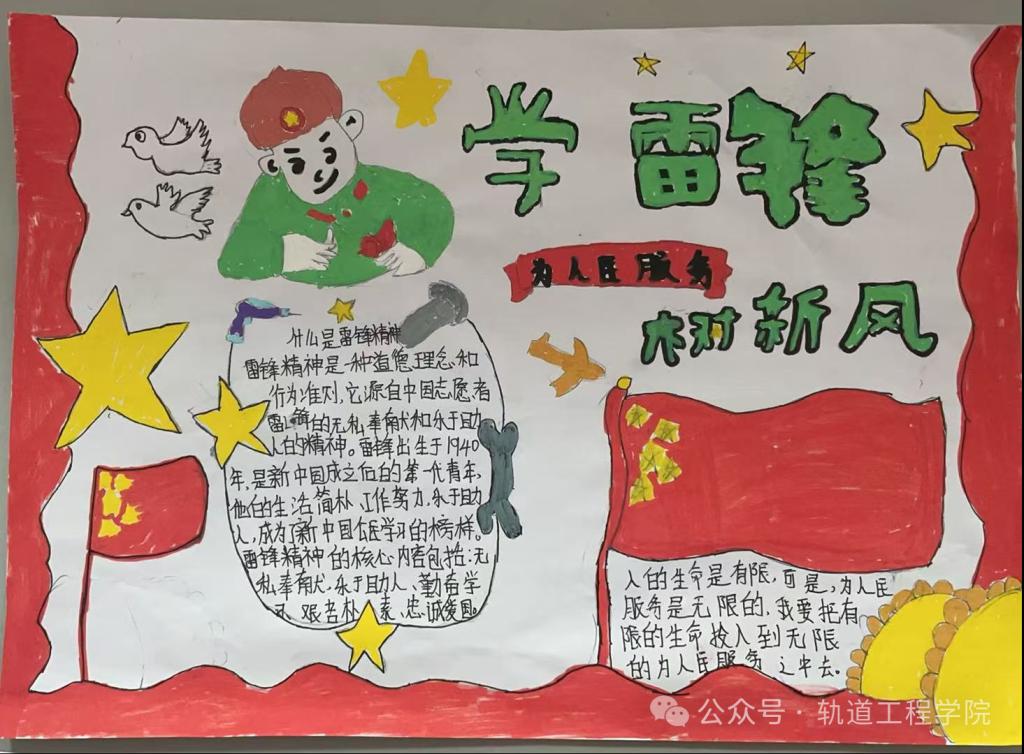 学雷锋
为人民服务
树新风
什么是雷锋精神
雷锋精神是一种道德理念和
行为准则,它源自中国志愿者
雷锋的无私奉献和乐于助
人的精神。雷锋出生于1940
年,是新中国成立后的第一代青年,
他的生活简朴、工作努力,乐于助
人,成为了新中国人民学习的榜样。
雷锋精神的核心内容包括:无
私奉献、乐于助人、勤奋学
习、艰苦朴素、忠诚爱国。
人的生命是有限,可是,为人民
服务是无限的,我要把有
限的生命投入到无限
的为人民服务之中去。
公众号·轨道工程学院